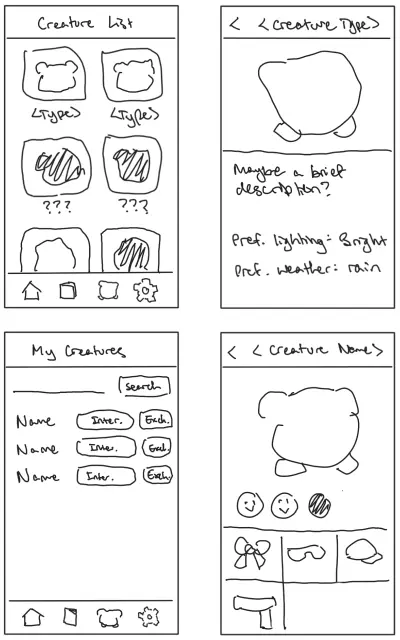 Creature List
<Type> <Type>
??? ???
< <Creature Type>
Maybe a brief
description?
Pref. lighting: Bright
Pref. weather: rain
My Creatures
Search
Name Inter. Exch.
Name Inter. Exch.
Name Inter. Exch.
< <Creature Name>